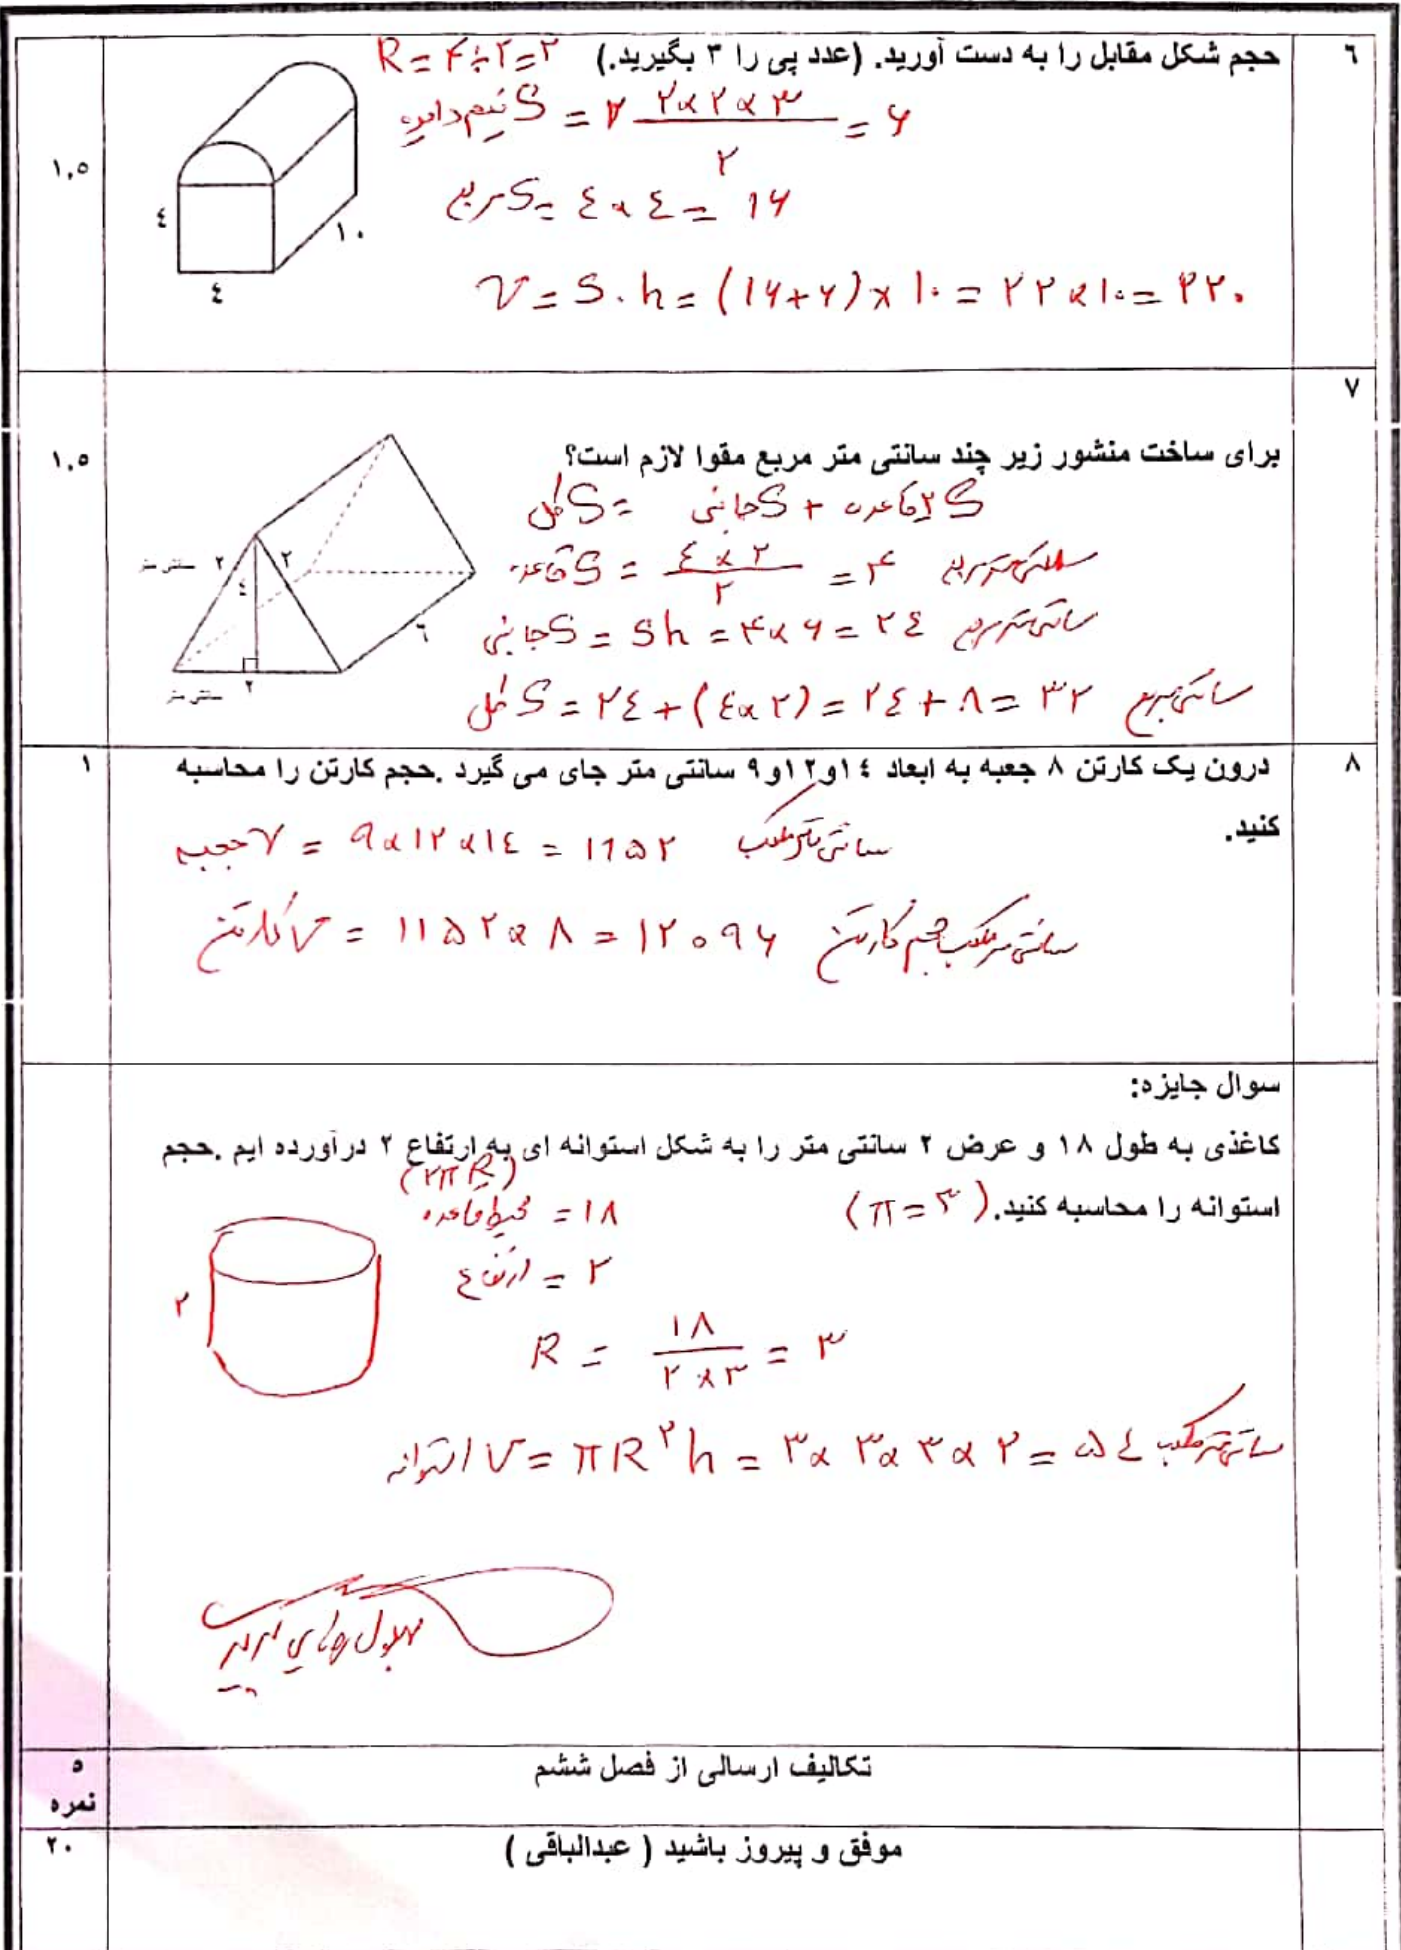 ٦
حجم شکل مقابل را به دست آورید. (عدد پی را ۳ بگیرید.)
R = ۴ ÷ ۲ = ۲
S نیم دایره = ۲×۲×۳ / ۲ = ۶
S مربع = ٤ × ٤ = ۱۶
V = S . h = (۱۶+۶) × ۱۰ = ۲۲ × ۱۰ = ۲۲۰
۱,٥
٤
٤
۱۰
۷
برای ساخت منشور زیر چند سانتی متر مربع مقوا لازم است؟
S کل = S جانبی + ۲S قاعده
S قاعده = ٤ × ۲ / ۲ = ۴ سانتی متر مربع
S جانبی = Sh = ۴ × ۶ = ۲٤ سانتی متر مربع
S کل = ۲٤ + (٤ × ۲) = ۲٤ + ۸ = ۳۲
۱,٥
سانتی متر ۲
۲
٤
٦
سانتی متر ۲
۸
درون یک کارتن ۸ جعبه به ابعاد ۱٤و۱۲و۹ سانتی متر جای می گیرد .حجم کارتن را محاسبه
کنید.
۱
V جعبه = ۹ × ۱۲ × ۱٤ = ۱۱۵۲
V کارتن = ۱۱۵۲ × ۸ = ۱۲۰۹۶ سانتی متر مکعب حجم کارتن
سوال جایزه:
کاغذی به طول ۱۸ و عرض ۲ سانتی متر را به شکل استوانه ای به ارتفاع ۲ درآورده ایم .حجم
استوانه را محاسبه کنید.( π = ۳ )
(۲πR)
محیط قاعده = ۱۸
ارتفاع = ۲
۲
R = ۱۸ / ۲ × ۳ = ۳
V استوانه = πR²h = ۳ × ۳ × ۳ × ۲ = ۵٤ سانتی متر مکعب
تکالیف ارسالی از فصل ششم
٥
نمره
موفق و پیروز باشید ( عبدالباقی )
۲۰